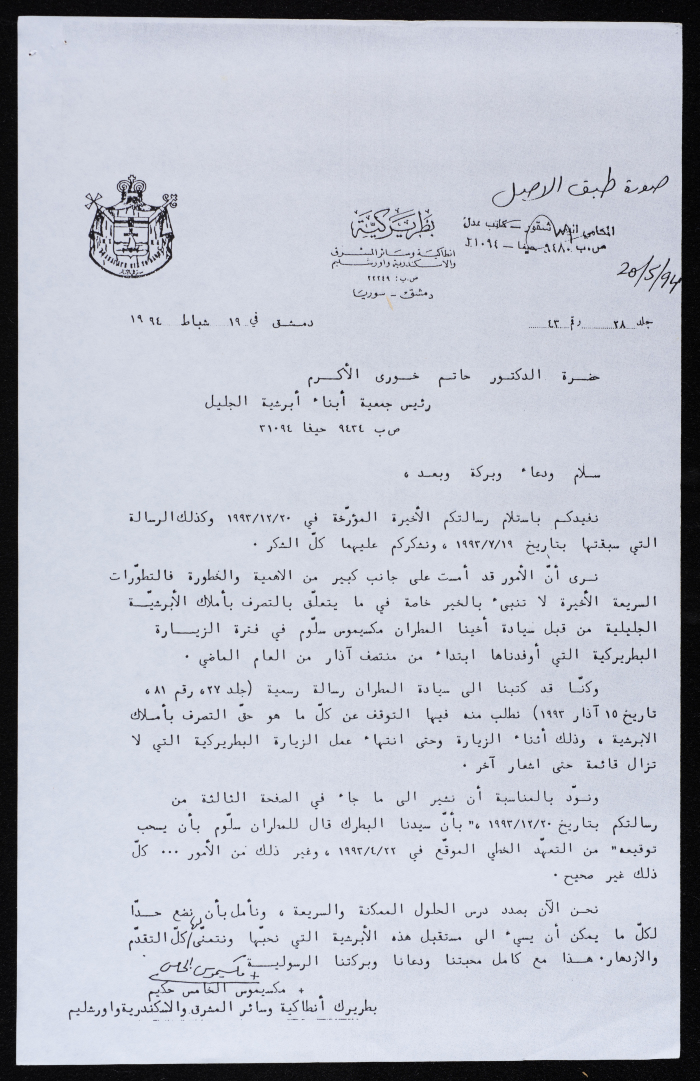 صورة طبق الاصل
المحامي شقور - كاتب عدل
ص.ب ٩٤٨٠ حيفا - ٣١٠٩٤
20/5/94
بطريركية
انطاكية وسائر المشرق
والاسكندرية واورشليم
ص.ب: ٢٢٢٤٩
دمشق - سوريا
جلد ٢٨ رقم ٤٣
دمشق في ١٩ شباط ١٩٩٤
حضرة الدكتور حاتم خوري الأكرم
رئيس جمعية أبناء أبرشية الجليل
ص ب ٩٤٣٤ حيفا ٣١٠٩٤
سلام ودعاء وبركة وبعد ،
نفيدكم باستلام رسالتكم الأخيرة المؤرّخة في ١٩٩٣/١٢/٢٠ وكذلك الرسالة
التي سبقتها بتاريخ ١٩٩٣/٧/١٩ ، ونشكركم عليهما كلّ الشكر .
نرى أنّ الأمور قد أمست على جانب كبير من الاهمية والخطورة فالتطوّرات
السريعة الأخيرة لا تنبىء بالخير خاصة في ما يتعلّق بالتصرف بأملاك الأبرشيّة
الجليلية من قبل سيادة أخينا المطران مكسيموس سلّوم في فترة الزيارة
البطريركية التي أوفدناها ابتداء من منتصف آذار من العام الماضي .
وكنّا قد كتبنا الى سيادة المطران رسالة رسمية (جلد ٢٧، رقم ٨١،
تاريخ ١٥ آذار ١٩٩٣) نطلب منه فيها التوقف عن كلّ ما هو حقّ التصرف بأملاك
الابرشية ، وذلك أثناء الزيارة وحتى انتهاء عمل الزيارة البطريركية التي لا
تزال قائمة حتى اشعار آخر .
ونودّ بالمناسبة أن نشير الى ما جاء في الصفحة الثالثة من
رسالتكم بتاريخ ١٩٩٣/١٢/٢٠ ، "بأنّ سيدنا البطرك قال للمطران سلّوم بأن يسحب
توقيعه" من التعهّد الخطي الموقّع في ١٩٩٣/٤/٢٢ ، وغير ذلك من الأمور ... كلّ
ذلك غير صحيح .
نحن الآن بصدد درس الحلول الممكنة والسريعة ، ونأمل بأن نضع حدّا
لكلّ ما يمكن أن يسيء الى مستقبل هذه الأبرشية التي نحبّها ونتمنّى لها كلّ التقدّم
والازدهار. هذا مع كامل محبتنا ودعانا وبركتنا الرسولية
+ مكسيموس الخامس
+ مكسيموس الخامس حكيم
بطريرك أنطاكية وسائر المشرق والاسكندرية واورشليم